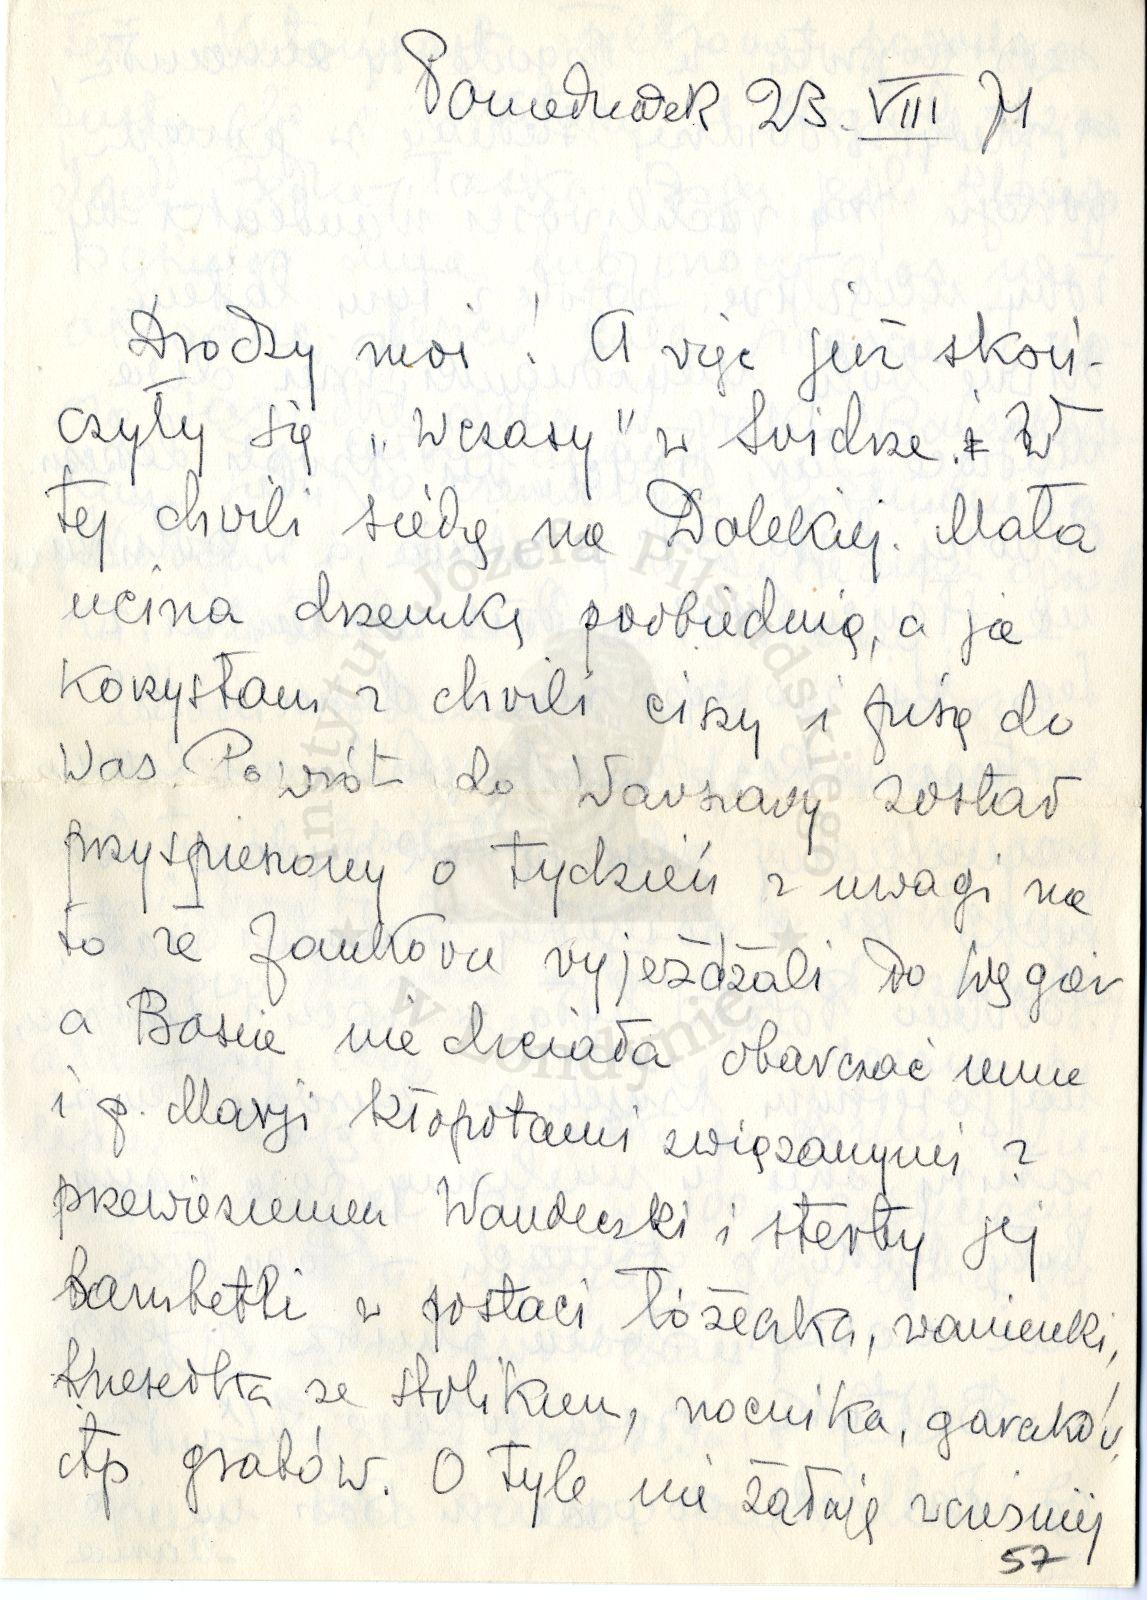 Poniedziałek 23. VIII 71
Drodzy moi! A więc już skoń-
czyły się „Wczasy" w Świdrze. W
tej chwili siedzę na Dalekiej. Mała
ucina drzemkę poobiednią, a ja
korzystam z chwili ciszy i piszę do
Was. Powrót do Warszawy został
przyspieszony o tydzień z uwagi na
to że Jankowie wyjeżdżali do Węgier
a Basia nie chciała obarczać mnie
i p. Marji kłopotami związanymi z
przewiezieniem Wandeczki i sterty jej
bambetli w postaci łóżeczka, wanienki,
krzesełka ze stolikiem, nocnika, garnków,
itp gratów. O tyle nie żałuję wcześniej
57
Instytut Józefa Piłsudskiego
w Londynie